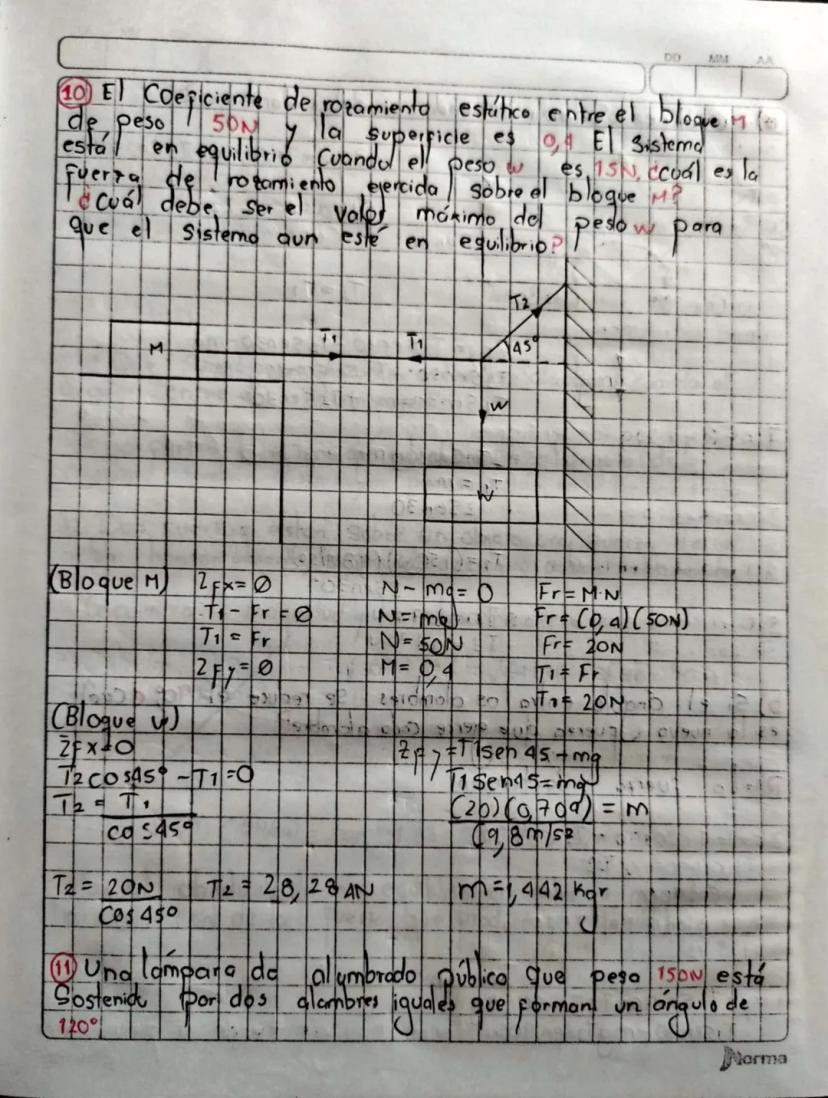 DD MM AA
10 El Coeficiente de rozamiento estático entre el bloque M
de peso 50N y la superficie es 0,4 El sistema
está en equilibrio cuando el peso w es 15N, ¿cuál es la
fuerza de rozamiento ejercida sobre el bloque M?
¿cuál debe ser el valor máximo del peso w para
que el sistema aun esté en equilibrio?
T2
M T1 T1 45°
W
W
(Bloque M) ΣFx=0 N-mg=0 Fr=M·N
T1-Fr=0 N=mg Fr=(0,4)(50N)
T1=Fr N=50N Fr=20N
ΣFy=0 M=0,4 T1=Fr
T1=20N
(Bloque W)
ΣFx=0 ΣFy=T1sen45-mg
T2cos45°-T1=0 T1Sen45=mg
T2=T1 (20)(0,709)=m
cos45° (9,8m/s2
T2=20N T2=28,284N m=1,442 Kgr
Cos45°
11 Una lámpara de alumbrado público que pesa 150N está
Sostenida por dos alambres iguales que forman un ángulo de
120°
Norma